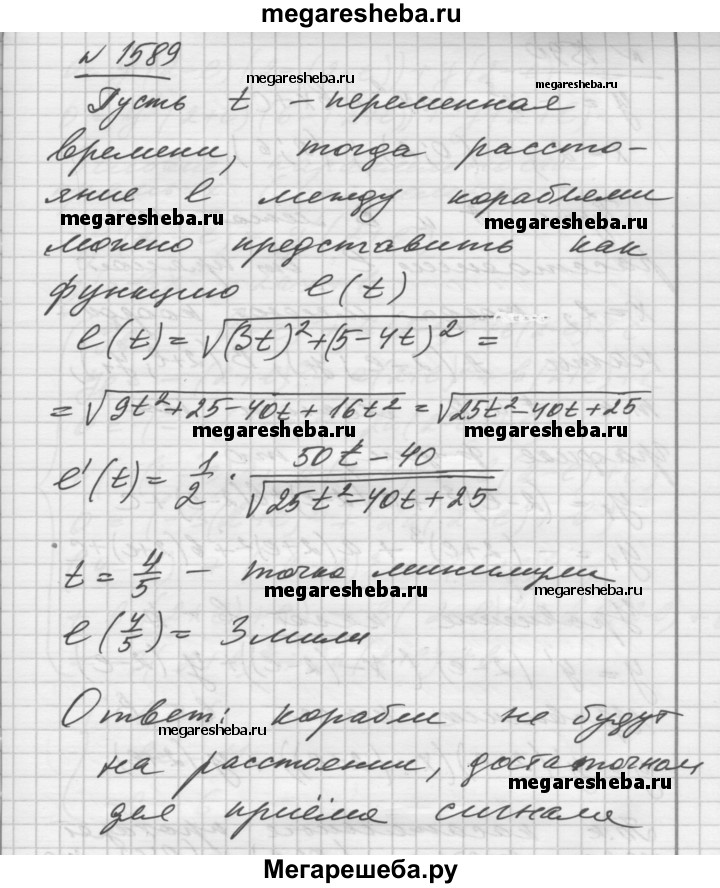 megaresheba.ru
N 1589
megaresheba.ru megaresheba.ru
Пусть t – переменная
времени, тогда рассто-
яние l между кораблями
megaresheba.ru megaresheba.ru
можно представить как
функцию l(t)
l(t) = √((3t)²+(5-4t)²) =
= √(9t²+25-40t+16t²) = √(25t²-40t+25)
megaresheba.ru megaresheba.ru
l'(t) = 1/2 · (50t-40)/√(25t²-40t+25)
t = 4/5 – точка минимума
megaresheba.ru megaresheba.ru
l(4/5) = 3 мили
Ответ: корабли не будут
megaresheba.ru
на расстоянии, достаточном
megaresheba.ru
для приёма сигнала
Мегарешеба.ру